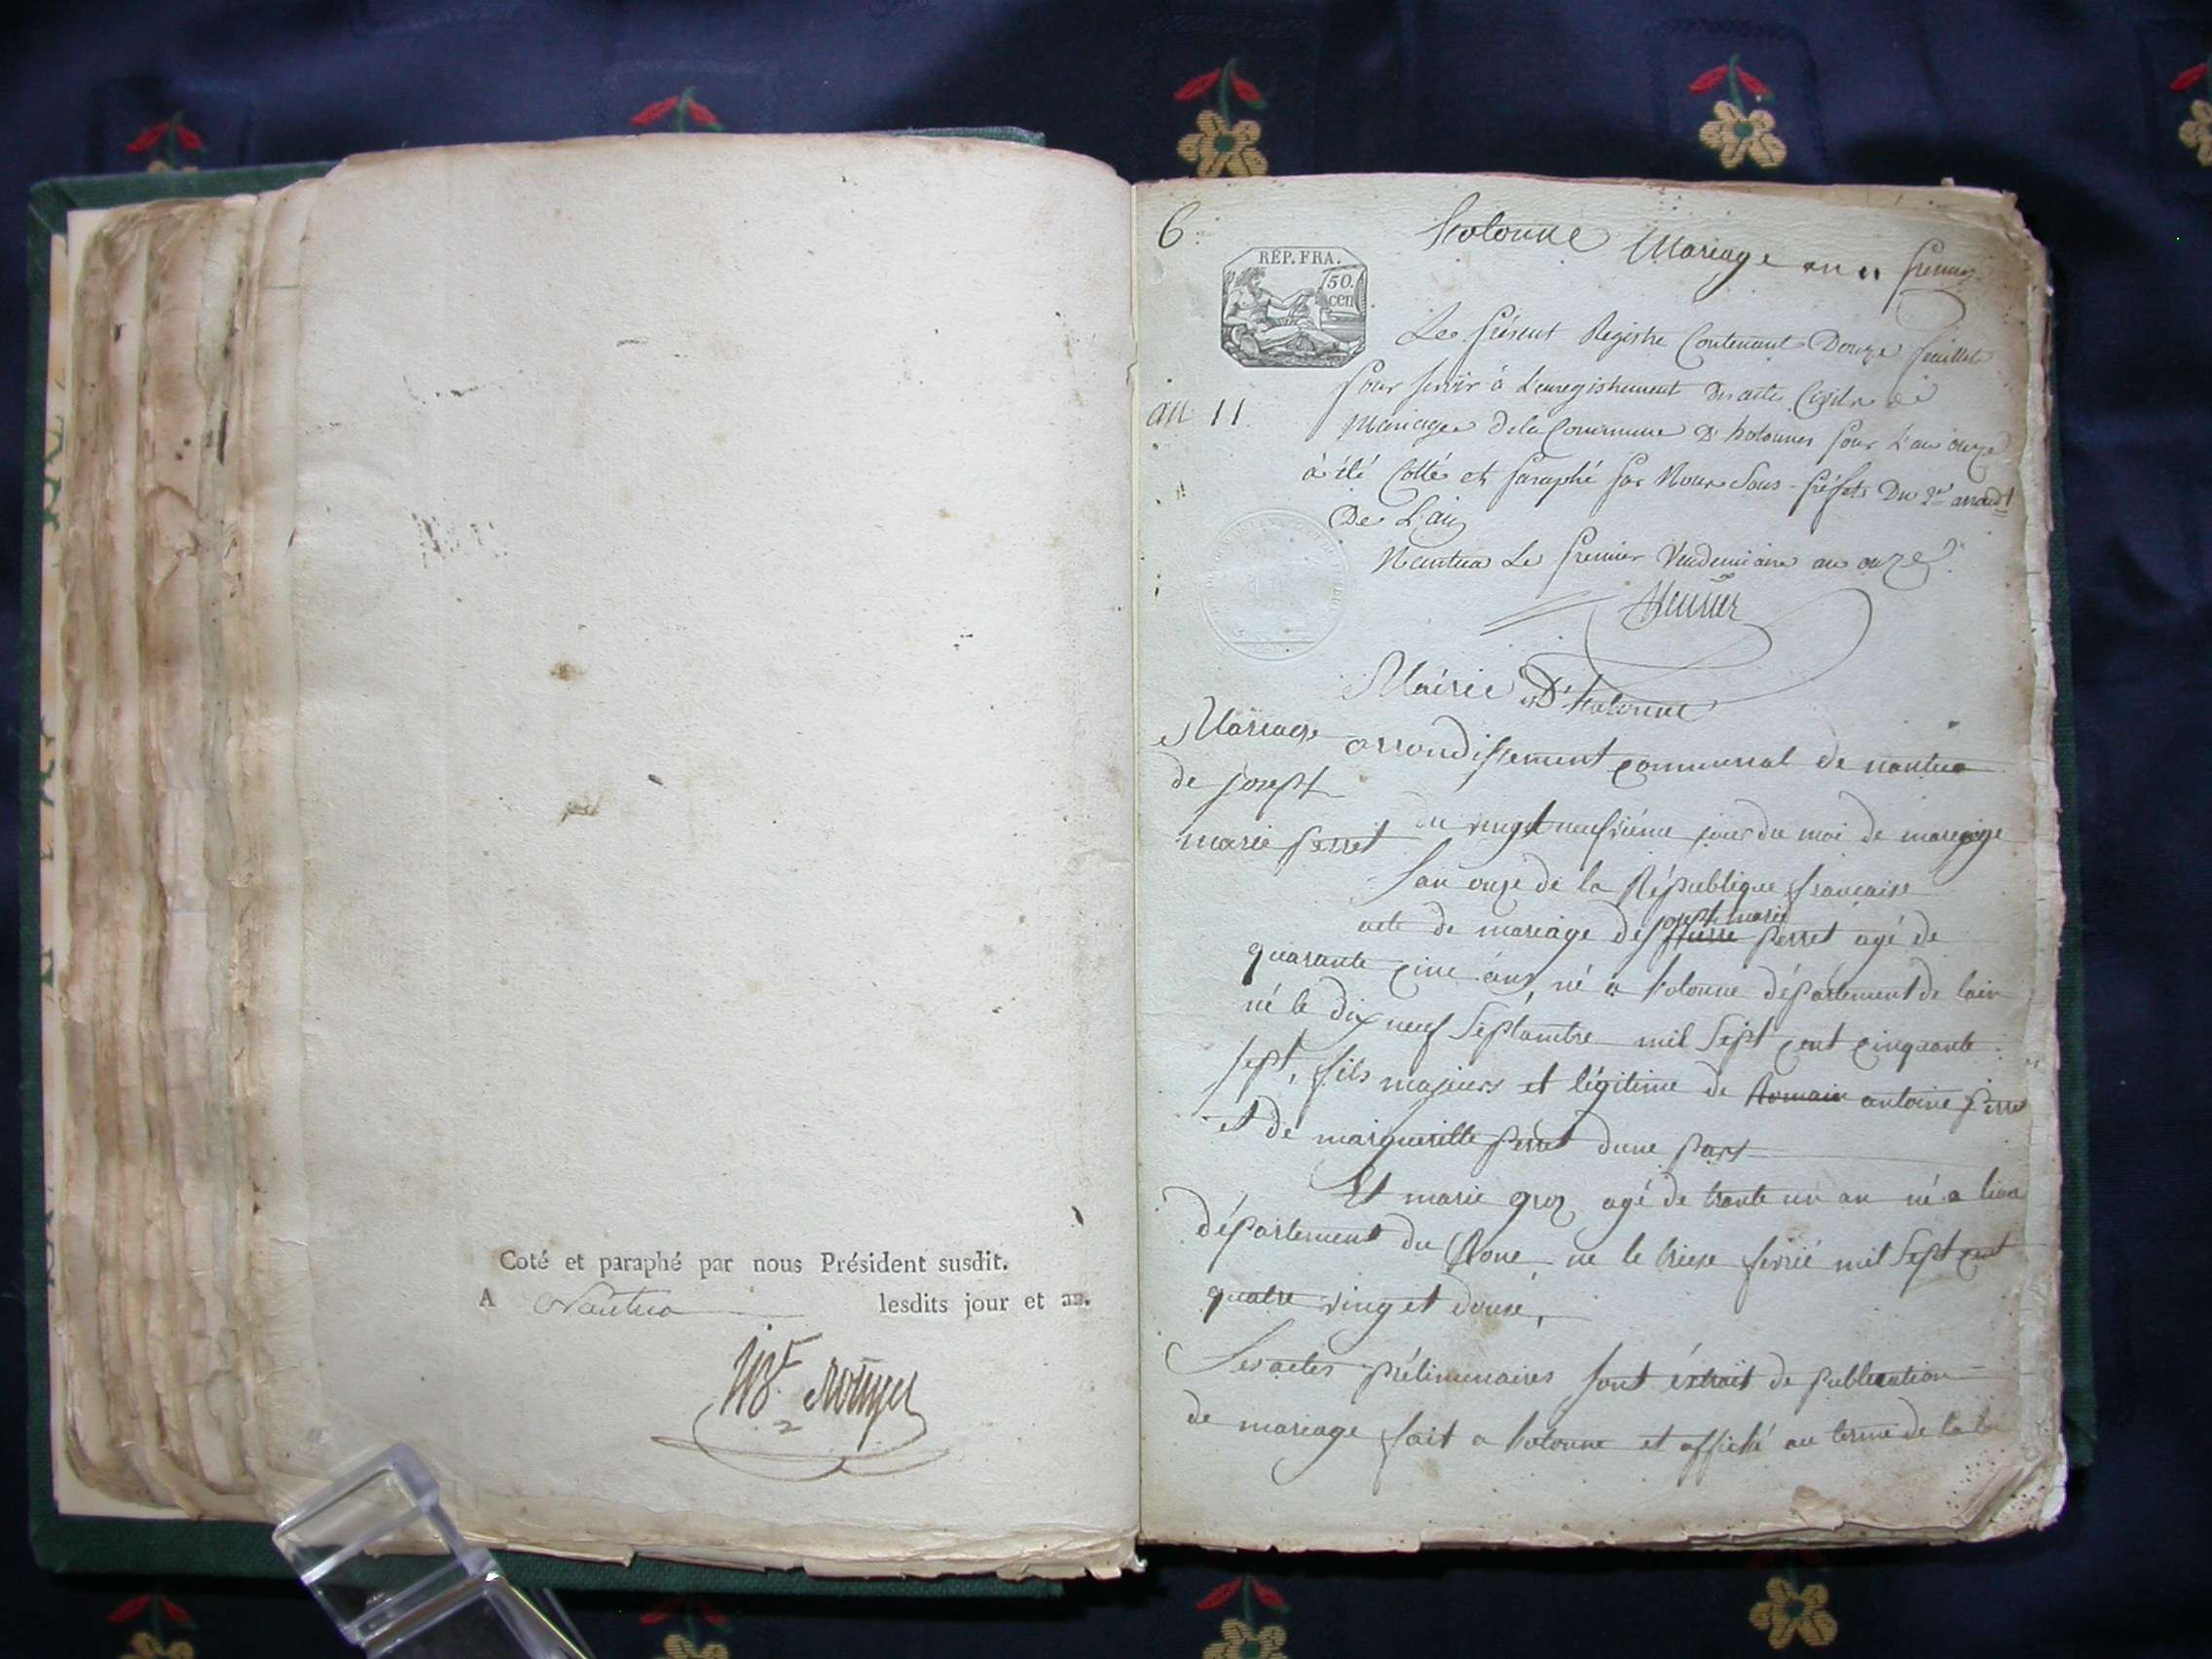 Coté et paraphé par nous Président susdit.
A Nantua lesdits jour et an.
6
hotonne Mariage an 11
REP. FRA.
50.
cen
Le présent Registre Contenant Douze feuillets
an 11
pour servir à L'enregistrement Des actes Civils de
Mariages de la Commune D'hotonnes pour L'an onze
à été Cotté et paraphé par Nous Sous-préfet Du 2e arrondt
De L'ain
Nantua Le premier Vendemiaire an onze
Mairie D'hotonne
Mariage
de joseph
marie perret
arrondissement communal de nantua
du vingt neufviéme jour du moi de
l'an onze de la République française
joseph marie
acte de mariage de pierre perret agé de
quarante cinc ans, né a hotonne département de lain
né le dix neuf Septambre mil Sept cent cinquante
sept, fils majeurs et légitime de Romain antoine perret
et de margueritte perret dune part
Et marie groz agé de trante un an né a lion
département du Rone, ne le treize fevrié mil Sept cent
quatre ving et douse,
Les actes préliminaires sont éxtrait de publication
de mariage fait a hotonne et affiché au terme de la loi